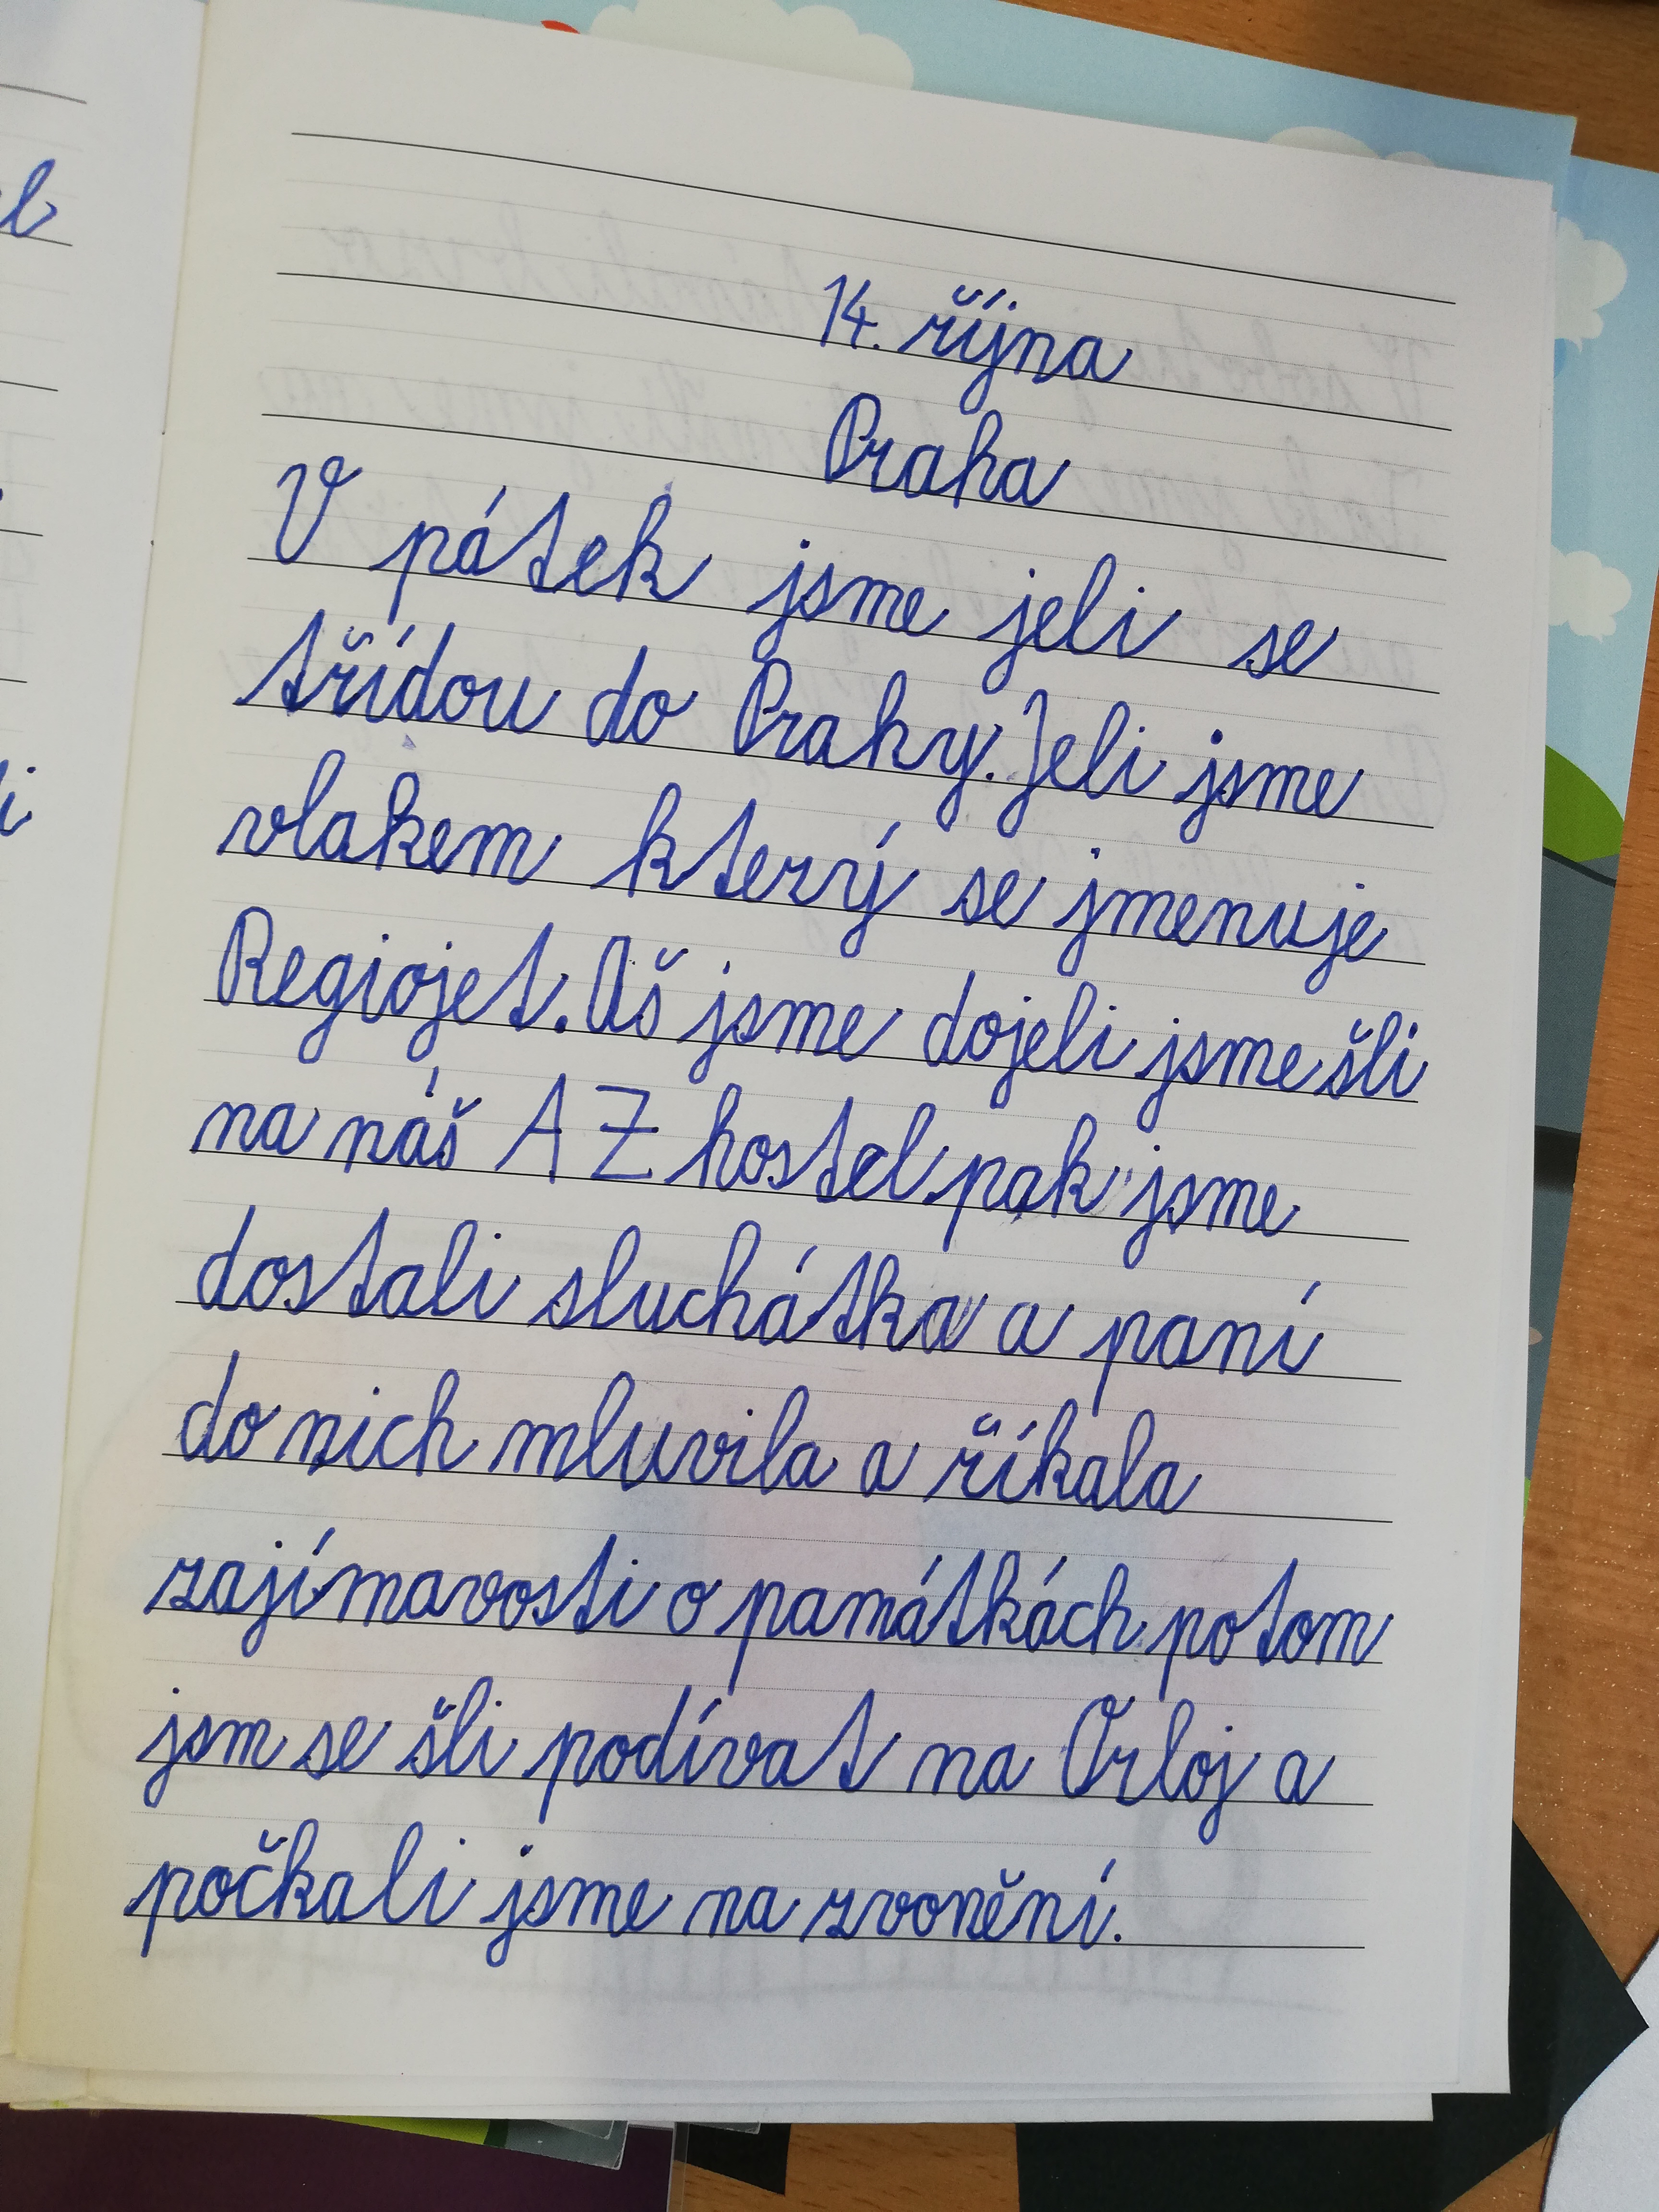 14. října
Praha
V pátek jsme jeli se
třídou do Prahy. Jeli jsme
vlakem který se jmenuje
Regiojet. Aš jsme dojeli jsme šli
na náš A Z hostel pak jsme
dostali sluchátka a paní
do nich mluvila a říkala
zajímavosti o památkách potom
jsm se šli podívat na Orloj a
počkali jsme na zvonění.